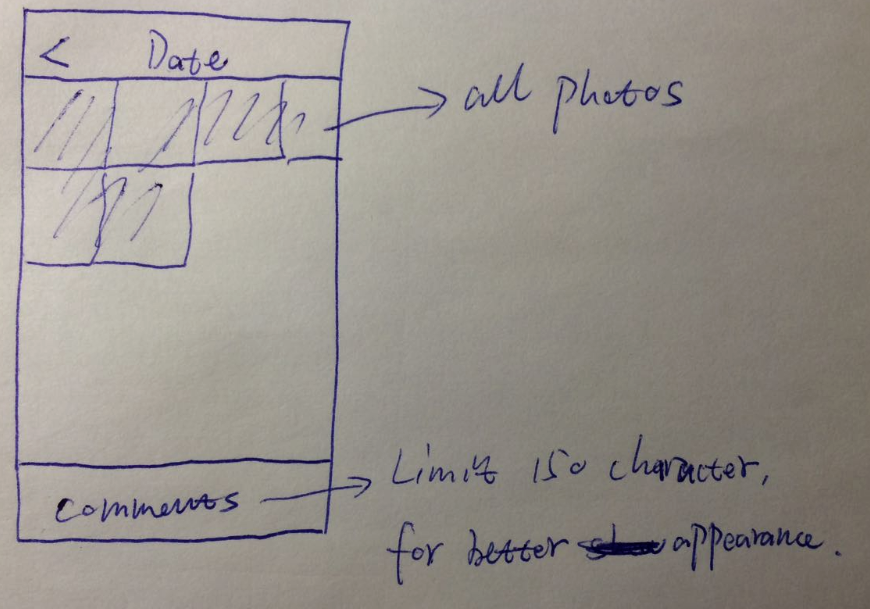 < Date
all photos
comments
Limit 150 character,
for better appearance.